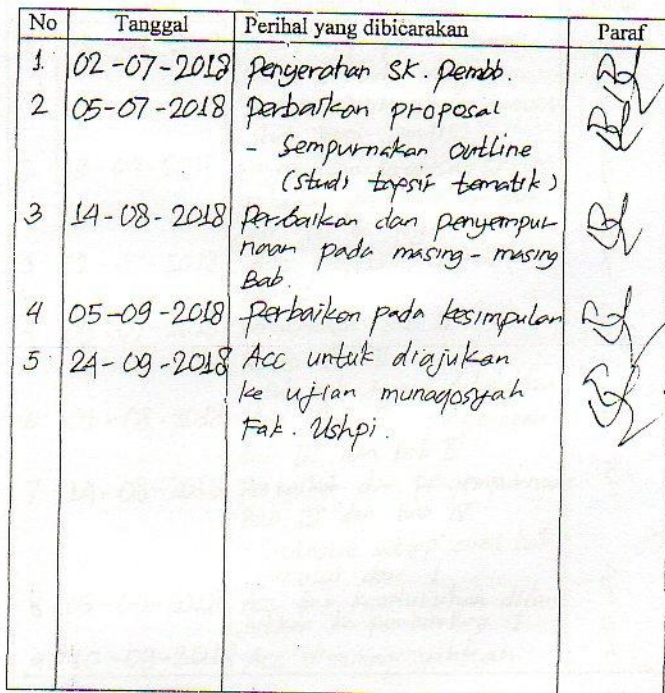 No Tanggal Perihal yang dibicarakan Paraf
1. 02-07-2018 Penyerahan SK. Pembb.
2 05-07-2018 Perbaikan proposal
- Sempurnakan Outline
(studi tapsir tematik)
3 14-08-2018 Perbaikan dan penyempur-
naan pada masing-masing
Bab.
4 05-09-2018 Perbaikan pada kesimpulan
5 24-09-2018 Acc untuk diajukan
ke ujian munaqosyah
Fak. Ushpi.